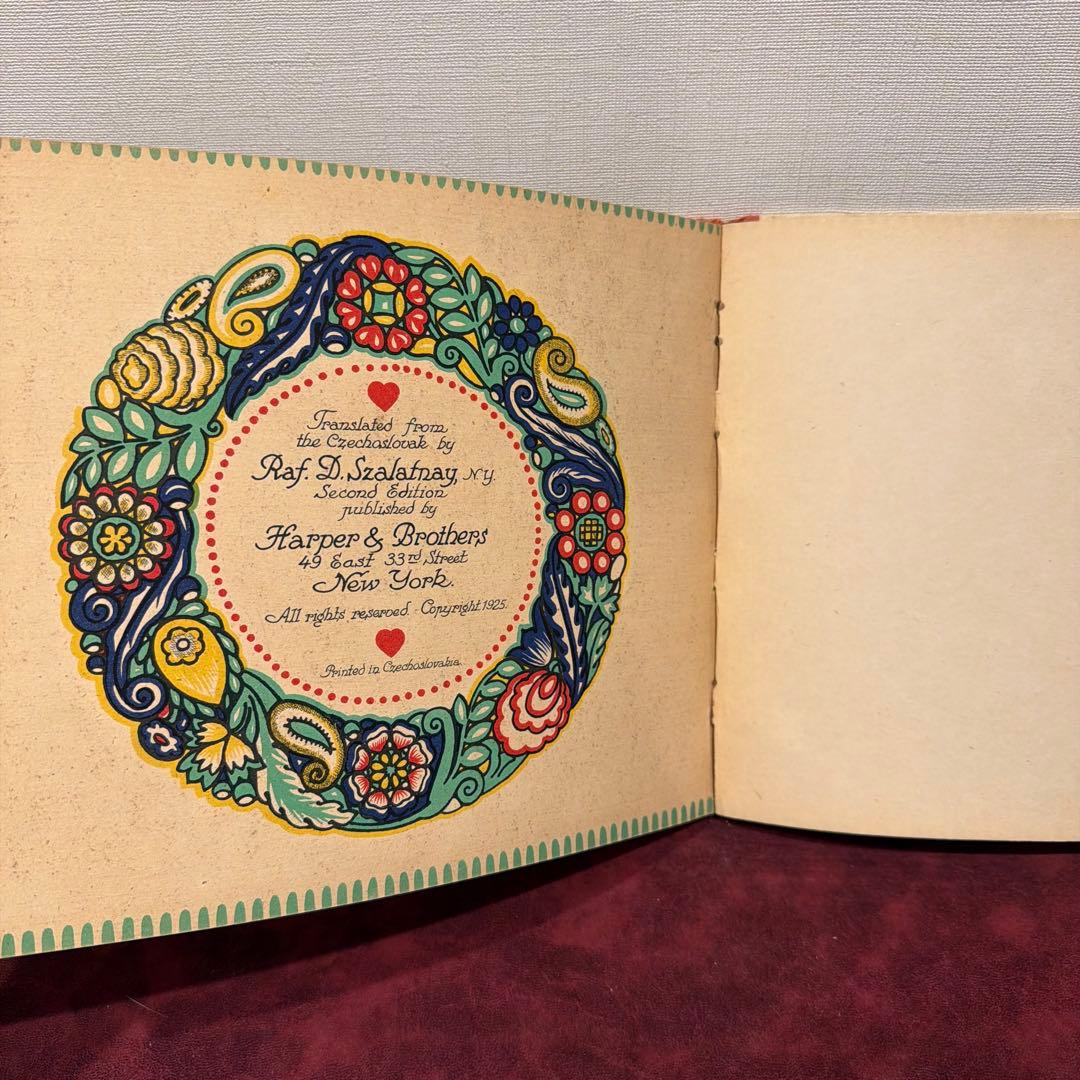 Translated from
the Czechoslovak by
Raf. D. Szalatnay, N.Y.
Second Edition
published by
Harper & Brothers
49 East 33rd Street
New York.
All rights reserved. Copyright 1925.
Printed in Czechoslovakia.